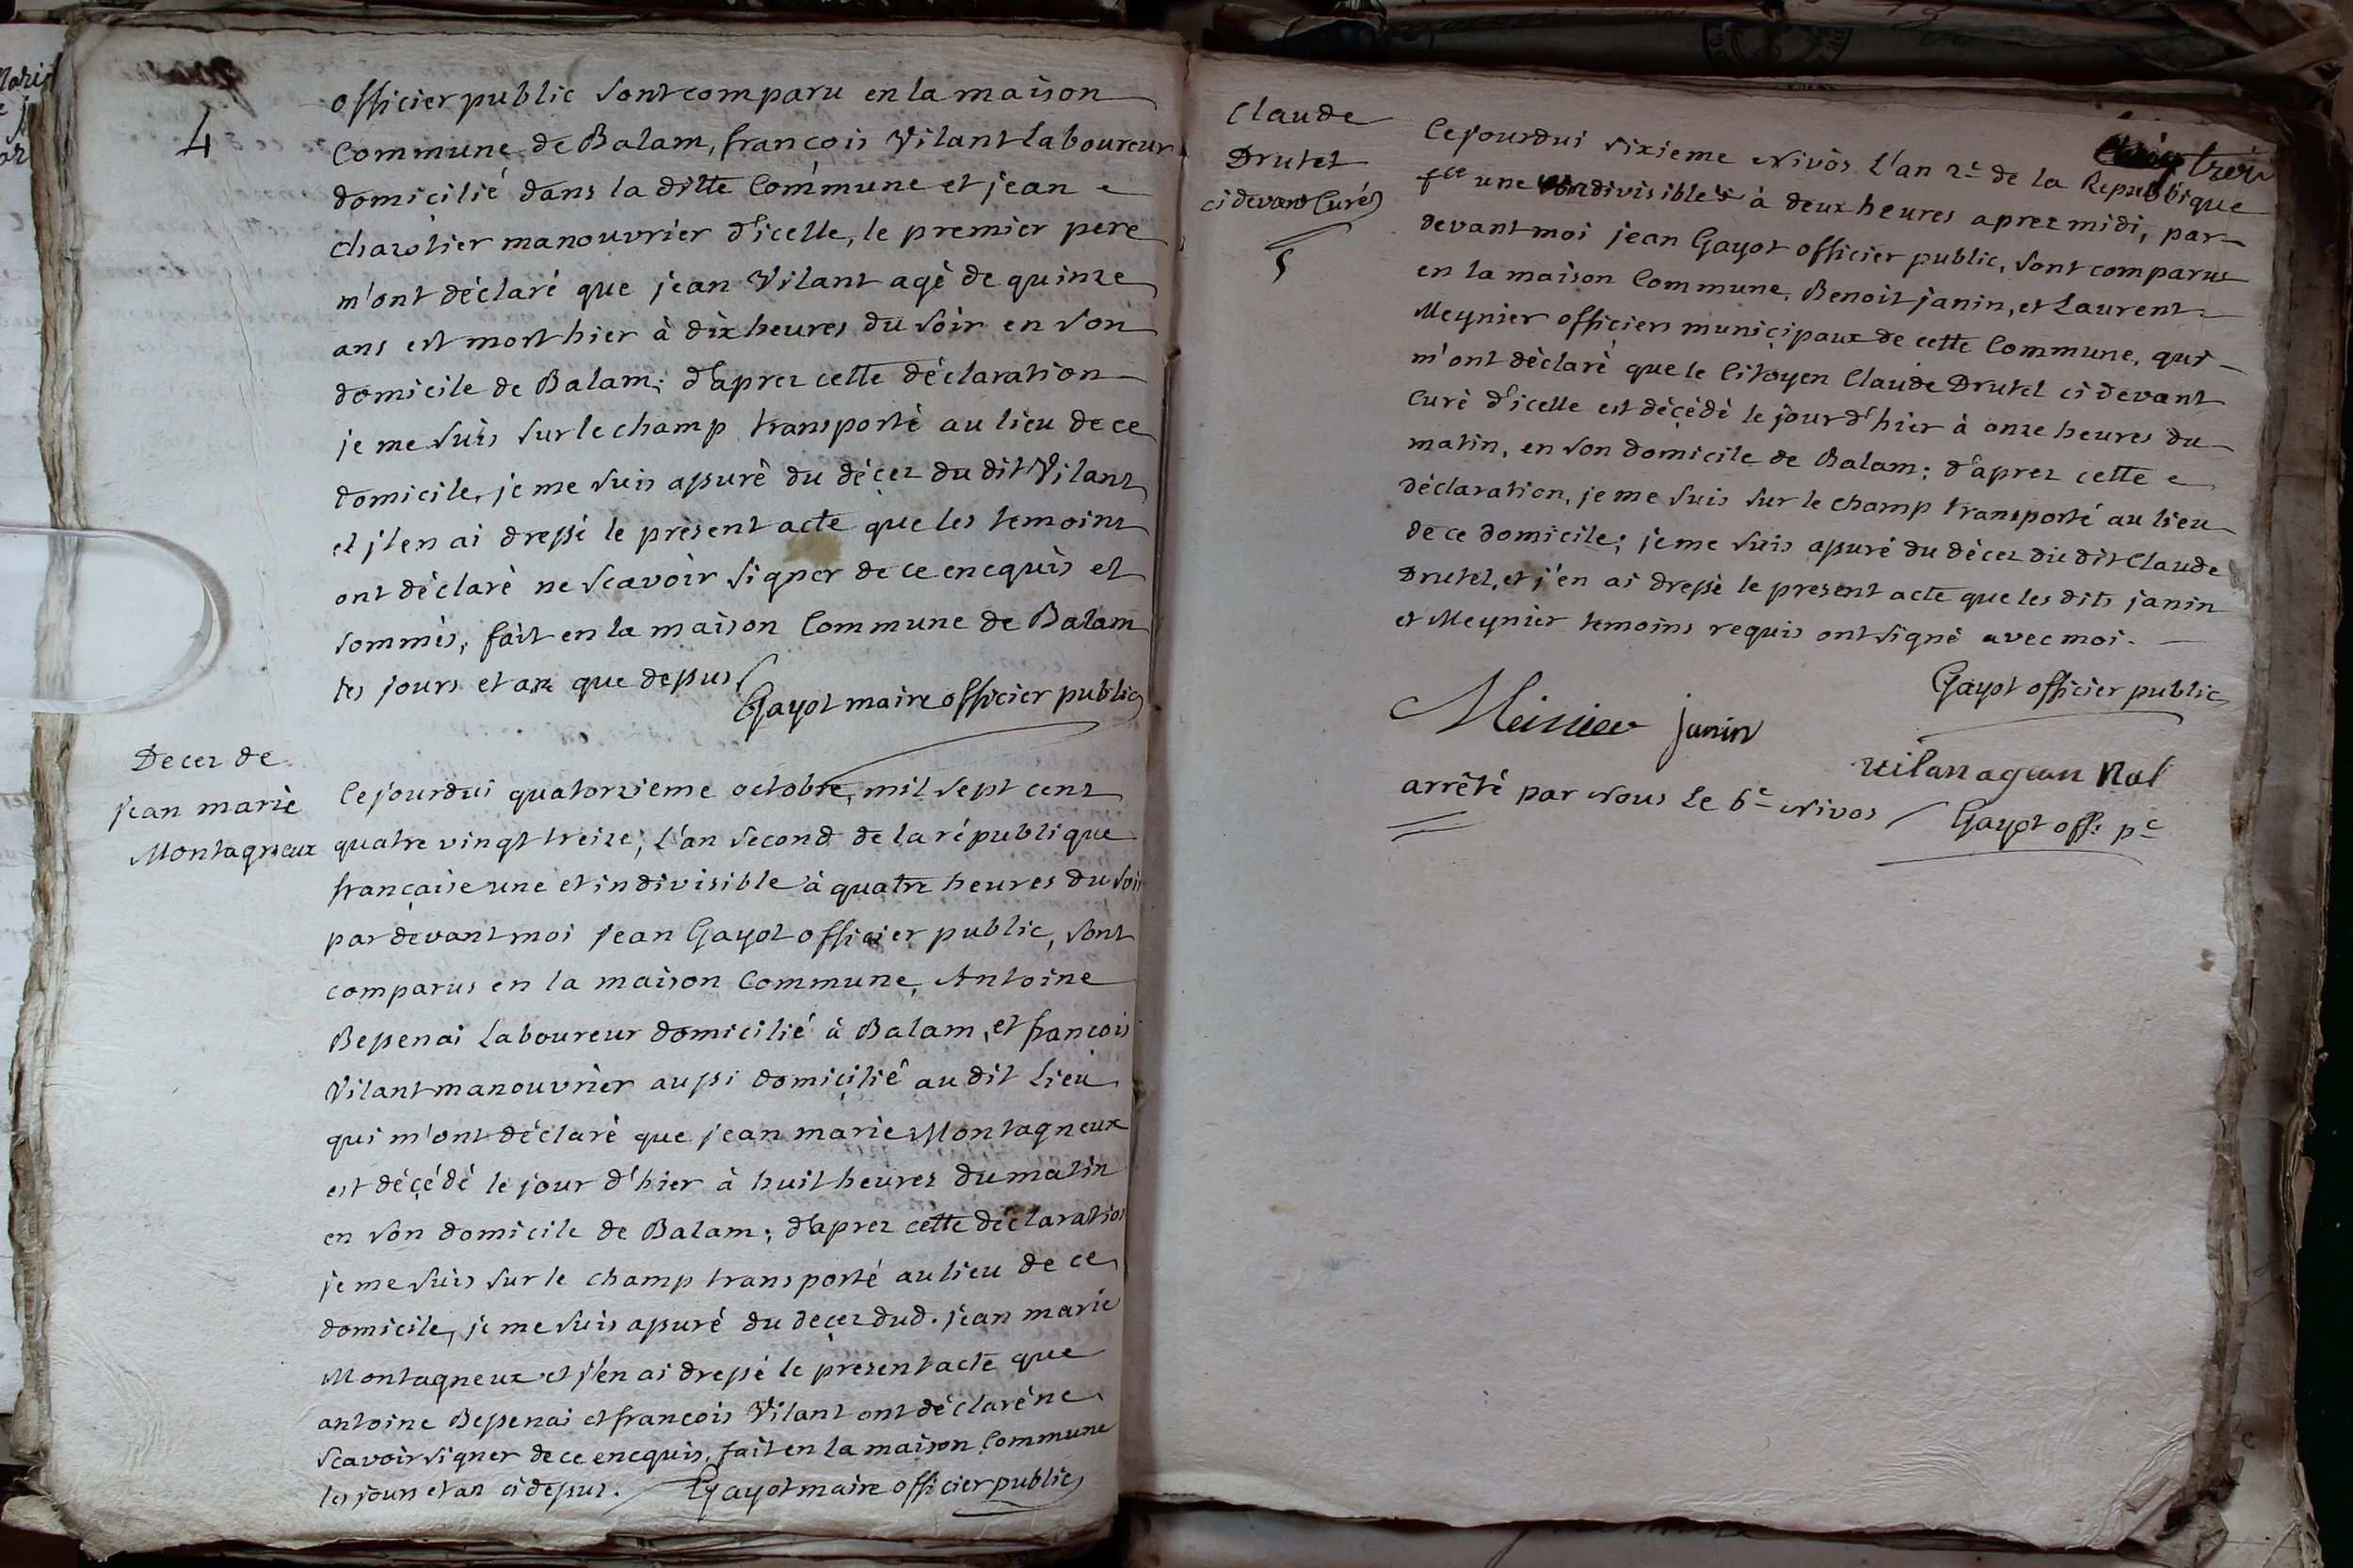 4
officier public sont comparu en la maison
Commune de Balam, françois Vilant Laboureur
domicilié dans la ditte Commune et jean
charotier manouvrier d'icelle, le premier pere
m'ont déclaré que jean Vilant agé de quinze
ans est mort hier à dix heures du soir en son
domicile de Balam; d'aprez cette déclaration
je me suis sur le champ transporté au lieu de ce
domicile, je me suis assuré du décez du dit Vilant
et j'en ai dressé le présent acte que les temoins
ont déclaré ne scavoir signer de ce encquis et
sommés, fait en la maison Commune de Balam
les jours et an que dessus
Gayot maire officier public
Decez de
jean marie
Montagneux
Cejourdui quatorzieme octobre, mil sept cent
quatre vingt treize, L'an second de la république
française une et indivisible à quatre heures du soir
par devant moi jean Gayot officier public, sont
comparus en la maison Commune, Antoine
Bessenai Laboureur domicilié à Balam, et françois
Vilant manouvrier aussi domicilié au dit Lieu
qui m'ont déclaré que jean marie Montagneux
est décédé le jour d'hier à huit heures du matin
en son domicile de Balam; d'aprez cette déclaration
je me suis sur le champ transporté au lieu de ce
domicile, je me suis assuré du decez dud. jean marie
Montagneux et j'en ai dressé le present acte que
antoine Bessenai et françois Vilant ont déclaré ne
scavoir signer de ce encquis, fait en la maison Commune
les jours et an ci dessus.
Gayot maire officier public
Claude
Drutel
ci devant Curé
5
Cejourdui sixieme Nivôs L'an 2e de la Republique
fce une indivisible à deux heures aprez midi, par
devant moi jean Gayot officier public, sont comparus
en la maison Commune, Benoit janin, et Laurent
Meynier officiers municipaux de cette Commune, qui
m'ont déclaré que le Citoyen Claude Drutel ci devant
Curé d'icelle est décédé le jour d'hier à onze heures du
matin, en son domicile de Balam; d'aprez cette
déclaration, je me suis sur le champ transporté au lieu
de ce domicile; je me suis assuré du décez du dit Claude
Drutel, et j'en ai dressé le present acte que les dits janin
et Meynier temoins requis ont signé avec moi.
Gayot officier public
Meinier janin
arrêté par Nous Le 6e Nivos
Gayot off. pc